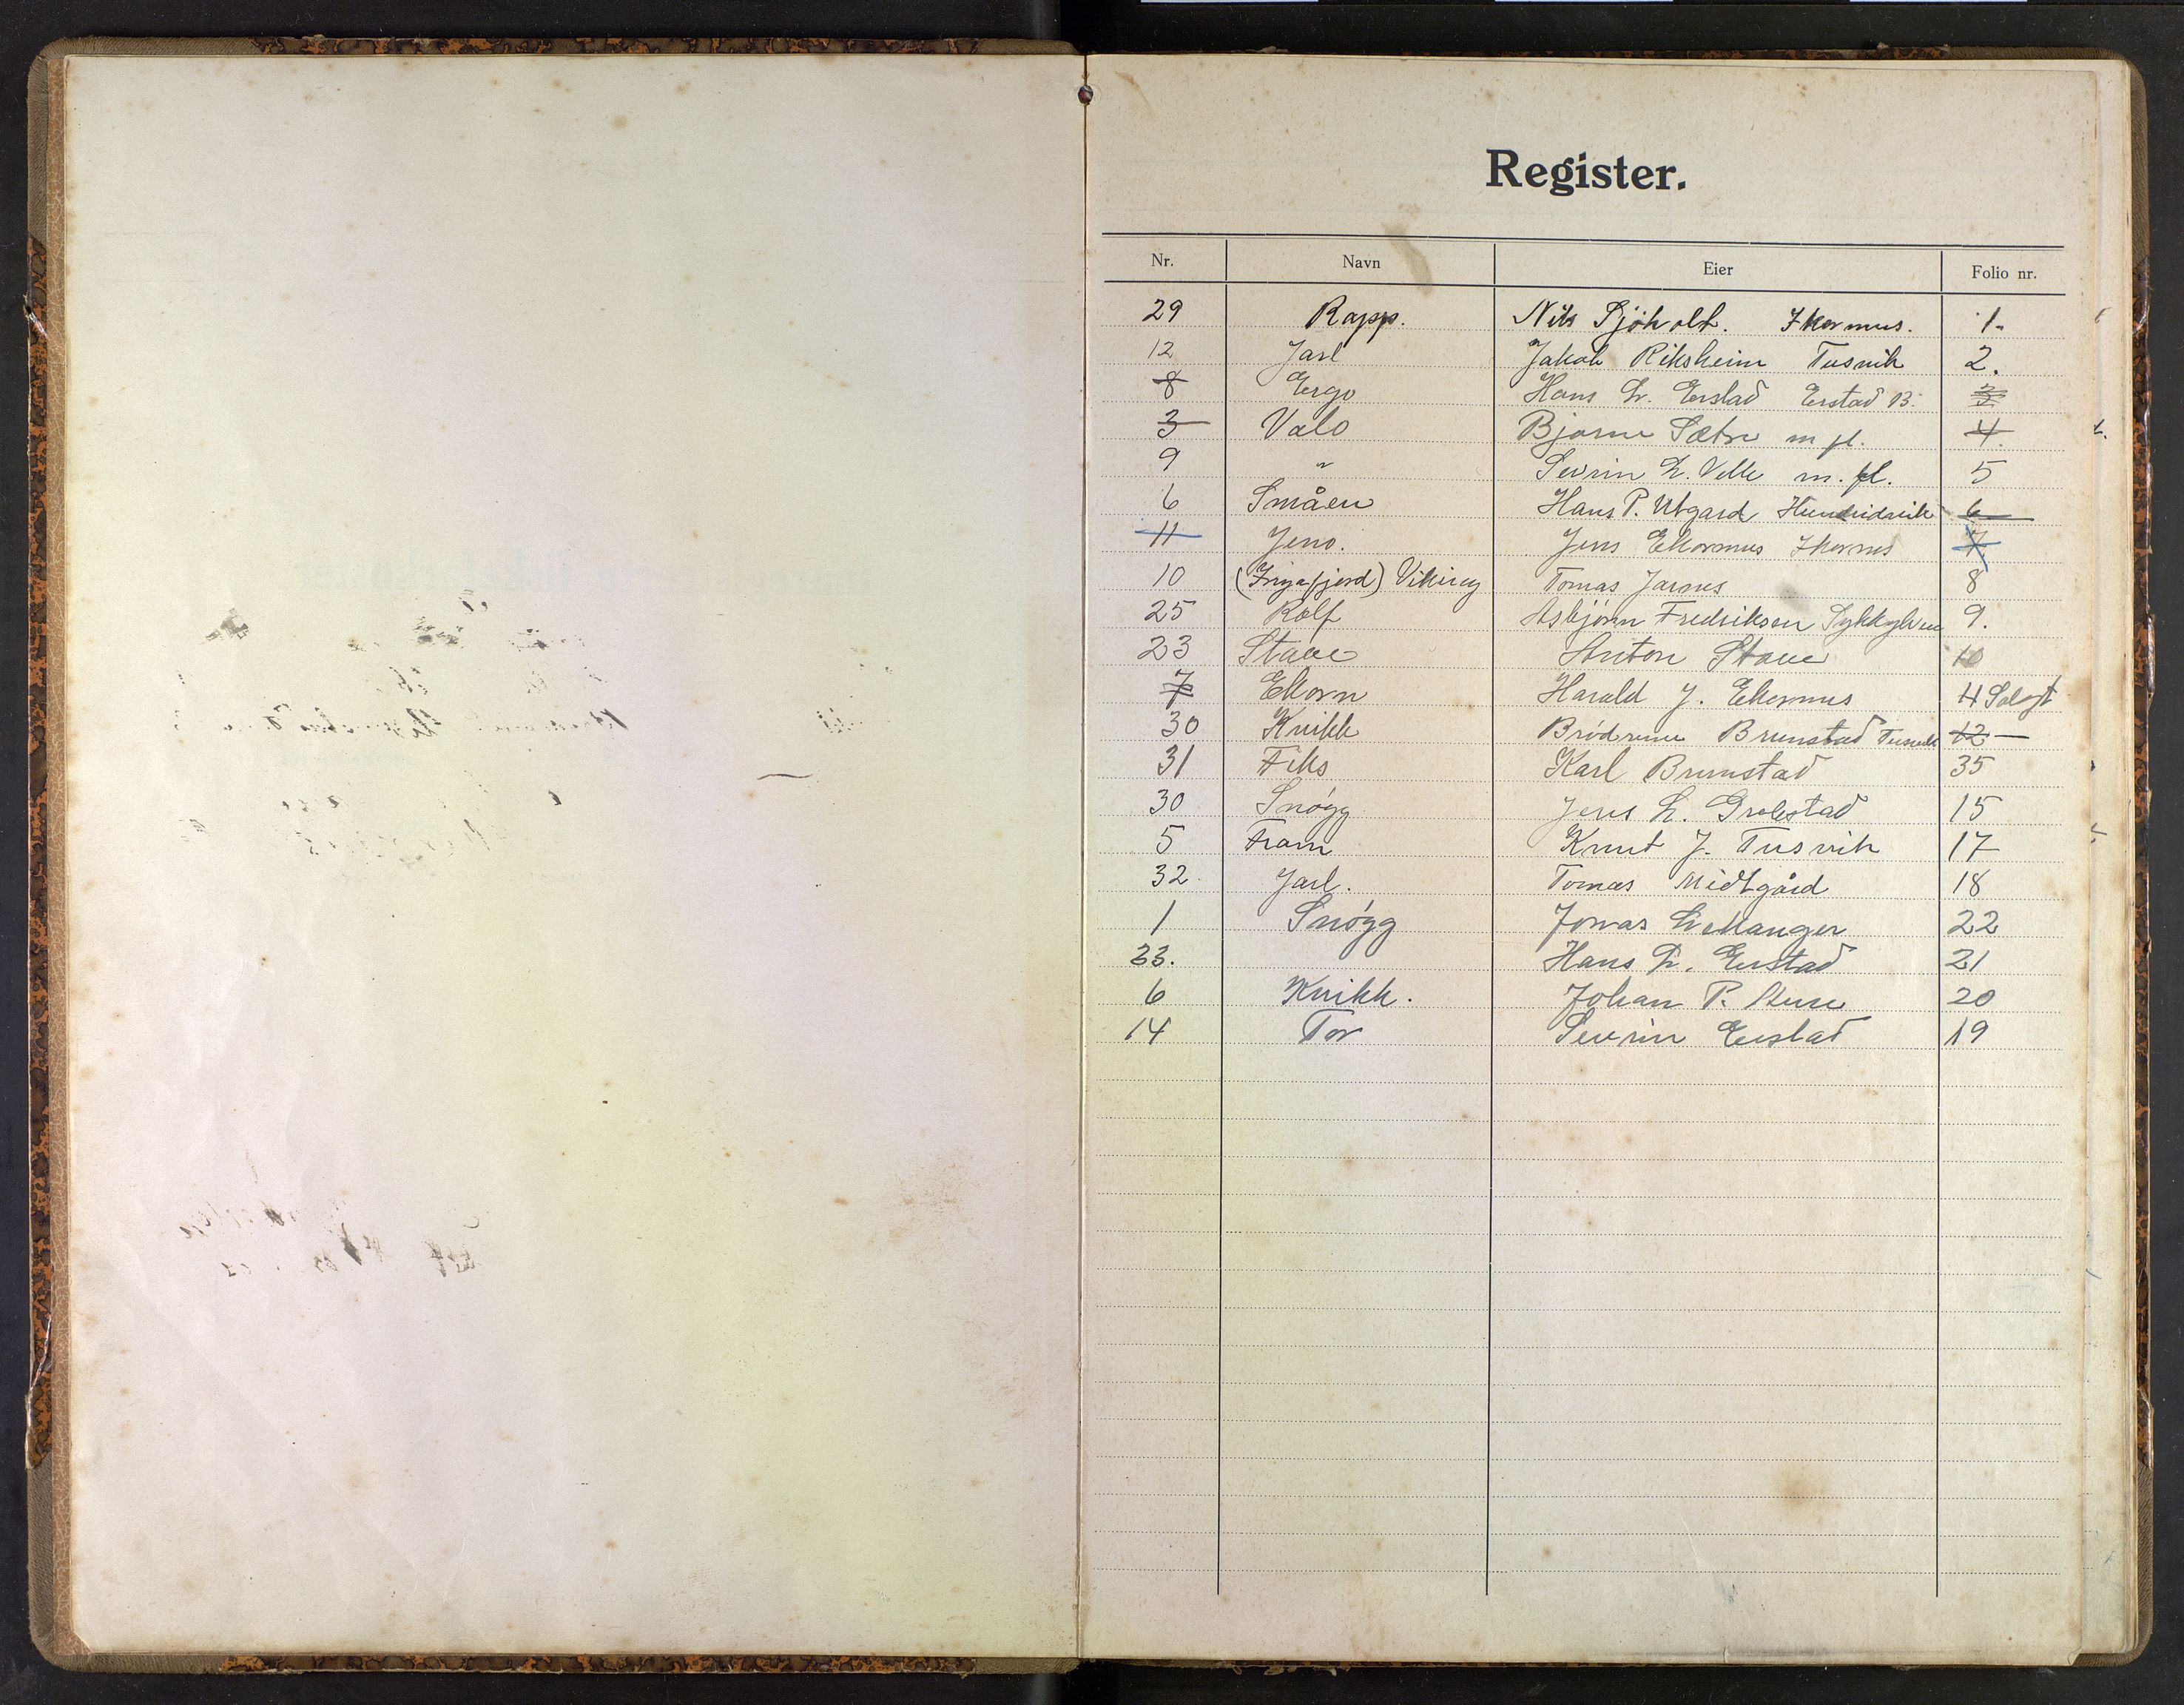 Register.
Nr. Navn Eier Folio nr.
29 Rapp. Nils Sjöholt. Ikornnes. 1.
12 Jarl Jakob Riksheim Tusvik 2.
8 Ergo Hans L. Erstad Erstad B. 3
3 Valo Bjarne Sætre m fl. 4
9 " Sevrin L. Velle m. fl. 5
6 Småen Hans P. Utgard Hundeidvik 6
11 Jeno. Jens Ekornnes Ikornes 7
10 (Trygafjord) Viking Tomas Jarnes 8
25 Rolf Asbjörn Fredriksen Sykkylven 9.
23 Stave Anton Stave 10
7 Ekorn Harald J. Ekornnes 11 Solgt
30 Kvikk Brødrene Brunstad Tusvik 12
31 Fiks Karl Brunstad 35
30 Snøgg Jens L. Grebstad 15
5 Fram Knut J. Tusvik 17
32 Jarl. Tomas Midtgård 18
1 Snøgg Jonas Lillevanger 22
33. Hans L. Erstad 21
6 Kvikk. Johan P. Aure 20
14 Tor Sevrin Erstad 19